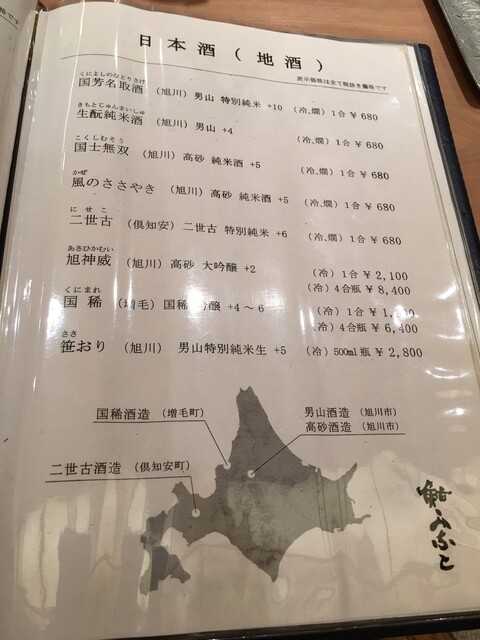 日本酒(地酒)
表示価格は全て税抜き価格です
くによしのなとりさけ
国芳名取酒 (旭川) 男山 特別純米 +10 (冷、燗) 1合 ¥680
きもとじゅんまいしゅ
生酛純米酒 (旭川) 男山 +4 (冷、燗) 1合 ¥680
こくしむそう
国士無双 (旭川) 高砂 純米酒 +5 (冷、燗) 1合 ¥680
かぜ
風のささやき (旭川) 高砂 純米酒 +5 (冷、燗) 1合 ¥680
にせこ
二世古 (倶知安) 二世古 特別純米 +6 (冷、燗) 1合 ¥680
あさひかむい
旭神威 (旭川) 高砂 大吟醸 +2 (冷) 1合 ¥2,100
(冷) 4合瓶 ¥8,400
くにまれ
国稀 (増毛) 国稀 吟醸 +4～6 (冷) 1合
(冷) 4合瓶 ¥6,400
ささ
笹おり (旭川) 男山特別純米生 +5 (冷) 500ml瓶 ¥2,800
国稀酒造 (増毛町)
男山酒造 (旭川市)
高砂酒造 (旭川市)
二世古酒造 (倶知安町)